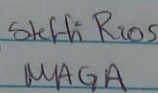 Steffi Rios
MAGA